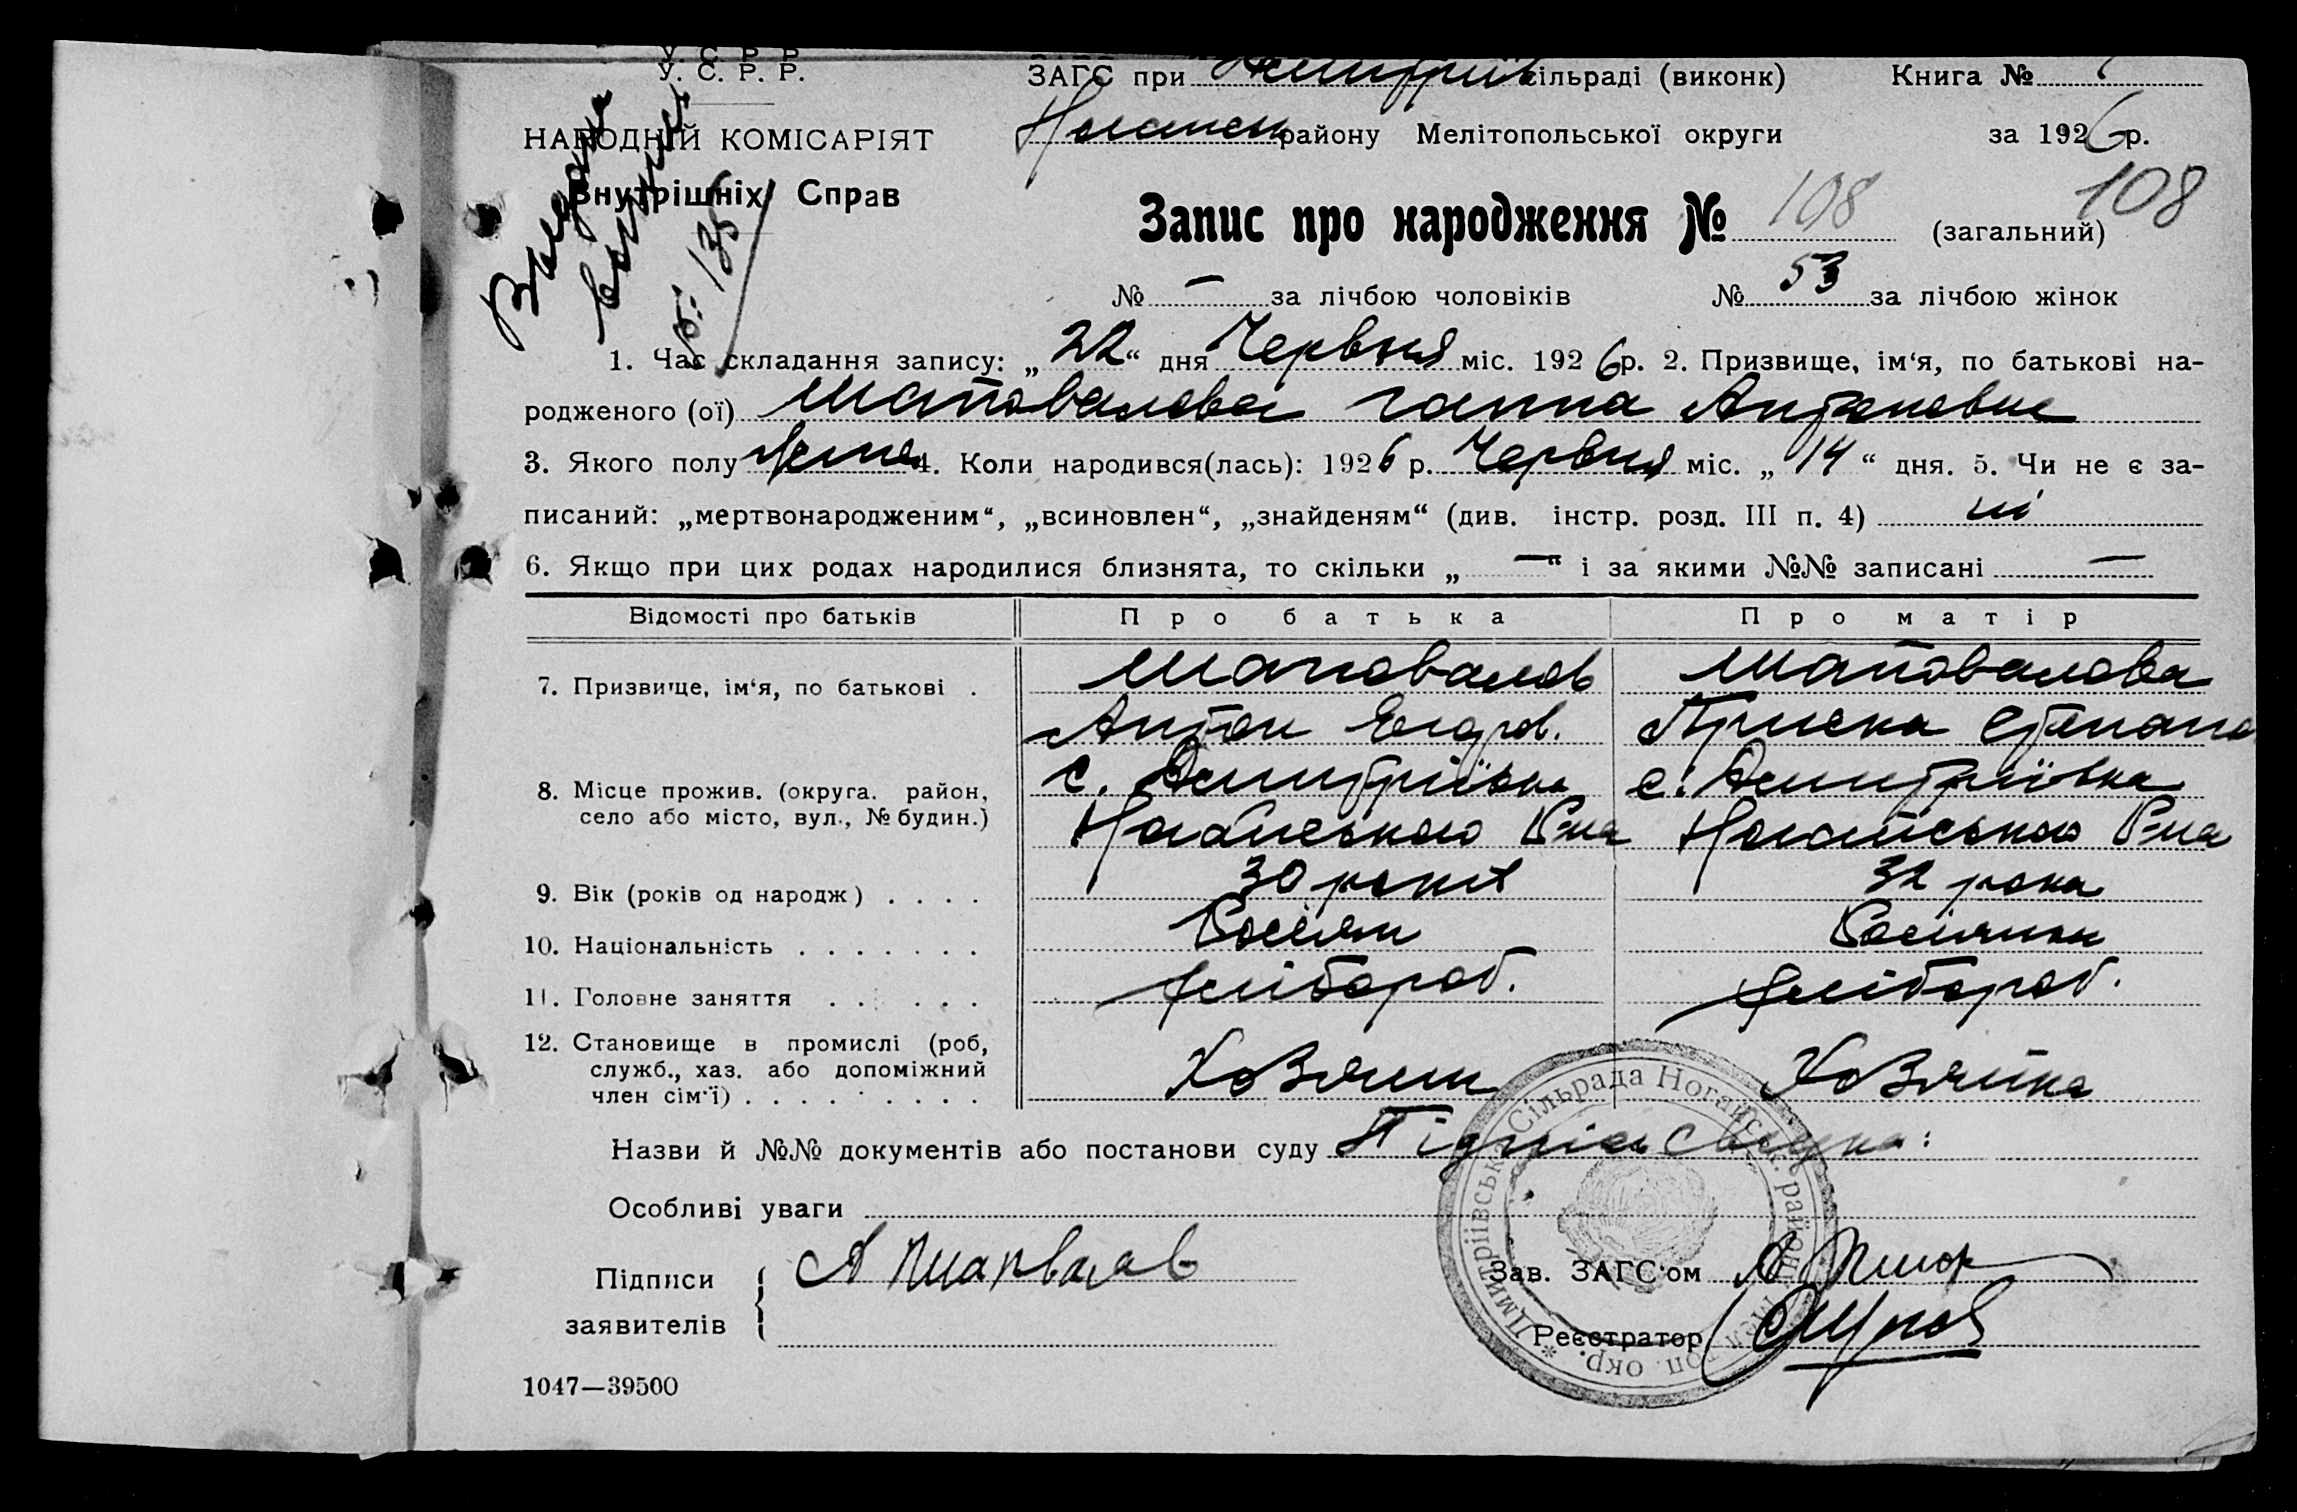 У. С. Р. Р.
У. С. Р. Р.
ЗАГС при Дмитрїїв сільраді (виконк) Книга №
НАРОДНІЙ КОМІСАРІЯТ
Внутрішніх Справ
Ногайськ району Мелітопольської округи за 1926 р.
Видана
Запис про народження № 108 (загальний) 108
№ — за лічбою чоловіків № 53 за лічбою жінок
1. Час складання запису: „22“ дня Червня міс. 1926 р. 2. Призвище, ім‘я, по батькові на-
родженого (ої) Шаповалова Ганна Антоновна
3. Якого полу жіноч 4. Коли народився(лась): 1926 р. Червня міс. „14“ дня. 5. Чи не є за-
писаний: „мертвонародженим“, „всиновлен“, „знайденям“ (див. інстр. розд. III п. 4) ні
6. Якщо при цих родах народилися близнята, то скільки „—“ і за якими №№ записані —
Відомості про батьків Про батька Про матір
7. Призвище, ім‘я, по батькові . Шаповалов Шаповалова
Антон Егоров. Приська Степано
8. Місце прожив. (округа. район, с. Дмитріївка с. Дмитріївка
село або місто, вул., № будин.) Ногайського Р-на Ногайського Р-на
9. Вік (років од народж) . . . . 30 років 32 рока
10. Національність . . . . . . . Росіян Росіянка
11. Головне заняття . . . . . . хлібороб. хлібороб.
12. Становище в промислі (роб, Хозяин Хозяйка
служб., хаз. або допоміжний
член сім‘ї) . . . . . . . . . .
Назви й №№ документів або постанови суду
Особливі уваги
Підписи
заявителів
А Шапвалов
Зав. ЗАГС‘ом
Реєстратор
Дмитріївська Сільрада Ногайськ. району Меліто­п. окр. *
1047—39500